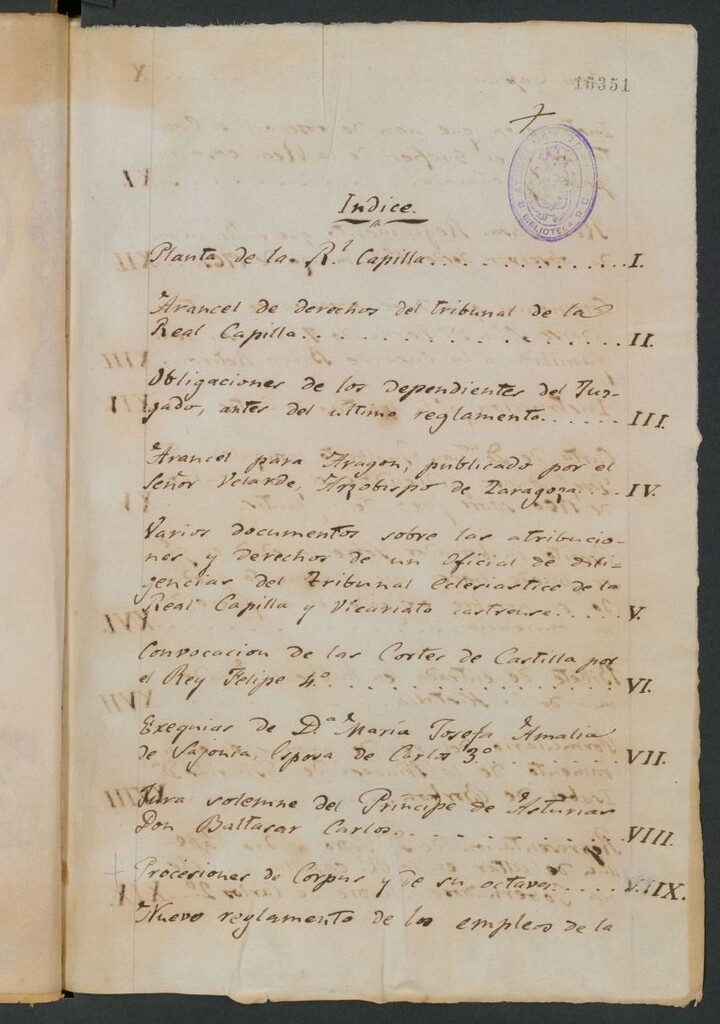 15351
BIBLIOTECA
Indice.
Planta de la R.l Capilla............I.
Arancel de derechos del tribunal de la
Real Capilla...................II.
Obligaciones de los dependientes del Juz-
gado, antes del ultimo reglamento......III.
Arancel para Aragon, publicado por el
Señor Velarde, Arzobispo de Zaragoza...IV.
Varios documentos sobre las atribucio-
nes y derechos de un Oficial de dili-
gencias del Tribunal Eclesiastico de la
Real Capilla y Vicariato castrense.....V.
Convocacion de las Cortes de Castilla por
el Rey Felipe 4.º.................VI.
Exequias de D.ª María Josefa Amalia
de Sajonia, Esposa de Carlos 3.º.......VII.
Jura solemne del Príncipe de Asturias
Don Baltasar Carlos..............VIII.
Procesiones de Corpus y de su octava.....IX.
Nuevo reglamento de los empleos de la